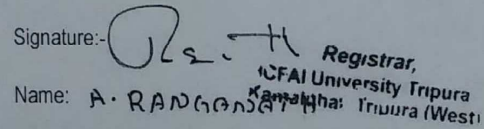 Signature:-
Registrar,
ICFAI University Tripura
Kamalghat Tripura (West)
Name: A. RANGANATH